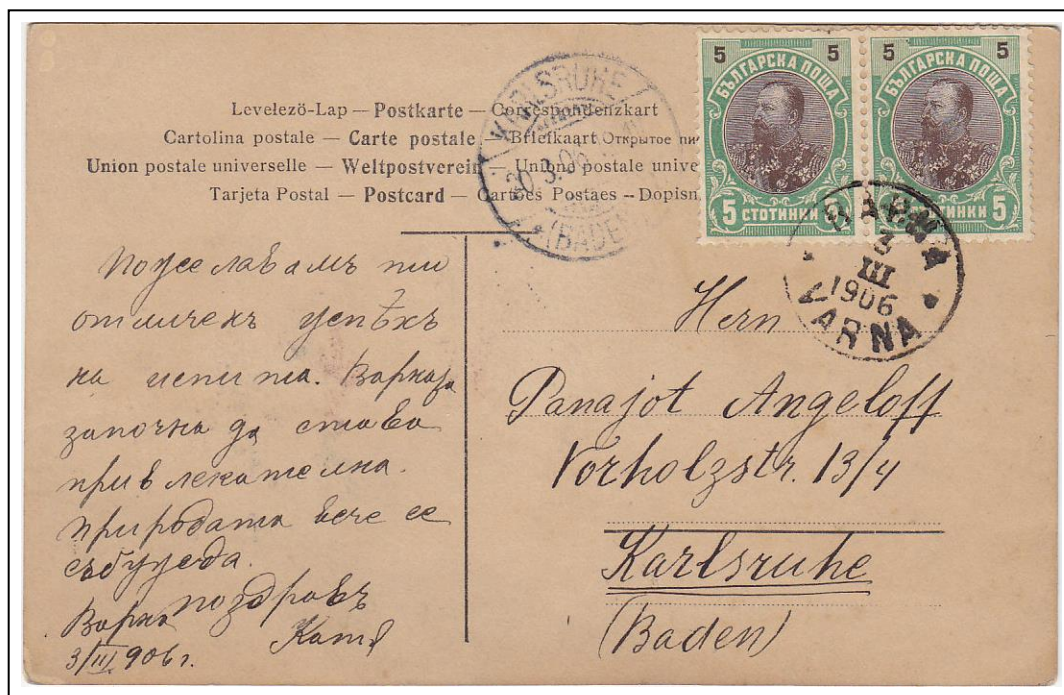 Levelező-Lap — Postkarte — Correspondenzkart
Cartolina postale — Carte postale — Briefkaart Открытое пи
Union postale universelle — Weltpostverein — Union postale unive
Tarjeta Postal — Postcard — Cartões Postaes – Dopisn
KARLSRUHE
3.06
(BADEN)
5 5
БЪЛГАРСКА ПОЩА
5 СТОТИНКИ 5
5 5
БЪЛГАРСКА ПОЩА
СТОТИНКИ 5
ВАРНА
3
III
1906
VARNA
Пожелавамъ ти
отличенъ успѣхъ
на испита. Варна
започна да става
привлекателна.
Природата вече се
събужда.
поздравъ
Варна
3/III 906 г.
Herrn
Panajot Angeloff
Vorholzstr. 13/4
Karlsruhe
(Baden)